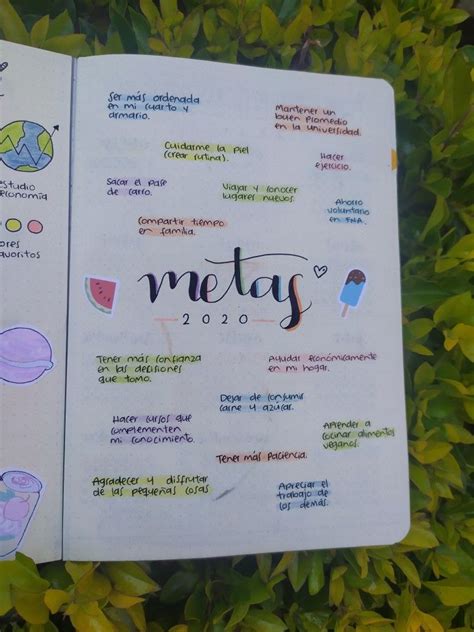 studio
economía
ores
avoritos
Ser más ordenada
en mi cuarto y
armario.
Mantener un
buen promedio
en la universidad.
Cuidarme la piel
(crear rutina).
Hacer
ejercicio.
Sacar el pase
de carro.
Viajar y conocer
lugares nuevos.
Ahorro
voluntario
en FNA.
Compartir tiempo
en familia.
metas
2020
Tener más confianza
en las decisiones
que tomo.
Ayudar económicamente
en mi hogar.
Dejar de consumir
carne y azúcar.
Hacer cursos que
complementen
mi conocimiento.
Aprender a
cocinar alimentos
veganos.
Tener más paciencia.
Agradecer y disfrutar
de las pequeñas cosas
Apreciar el
trabajo de
los demás.